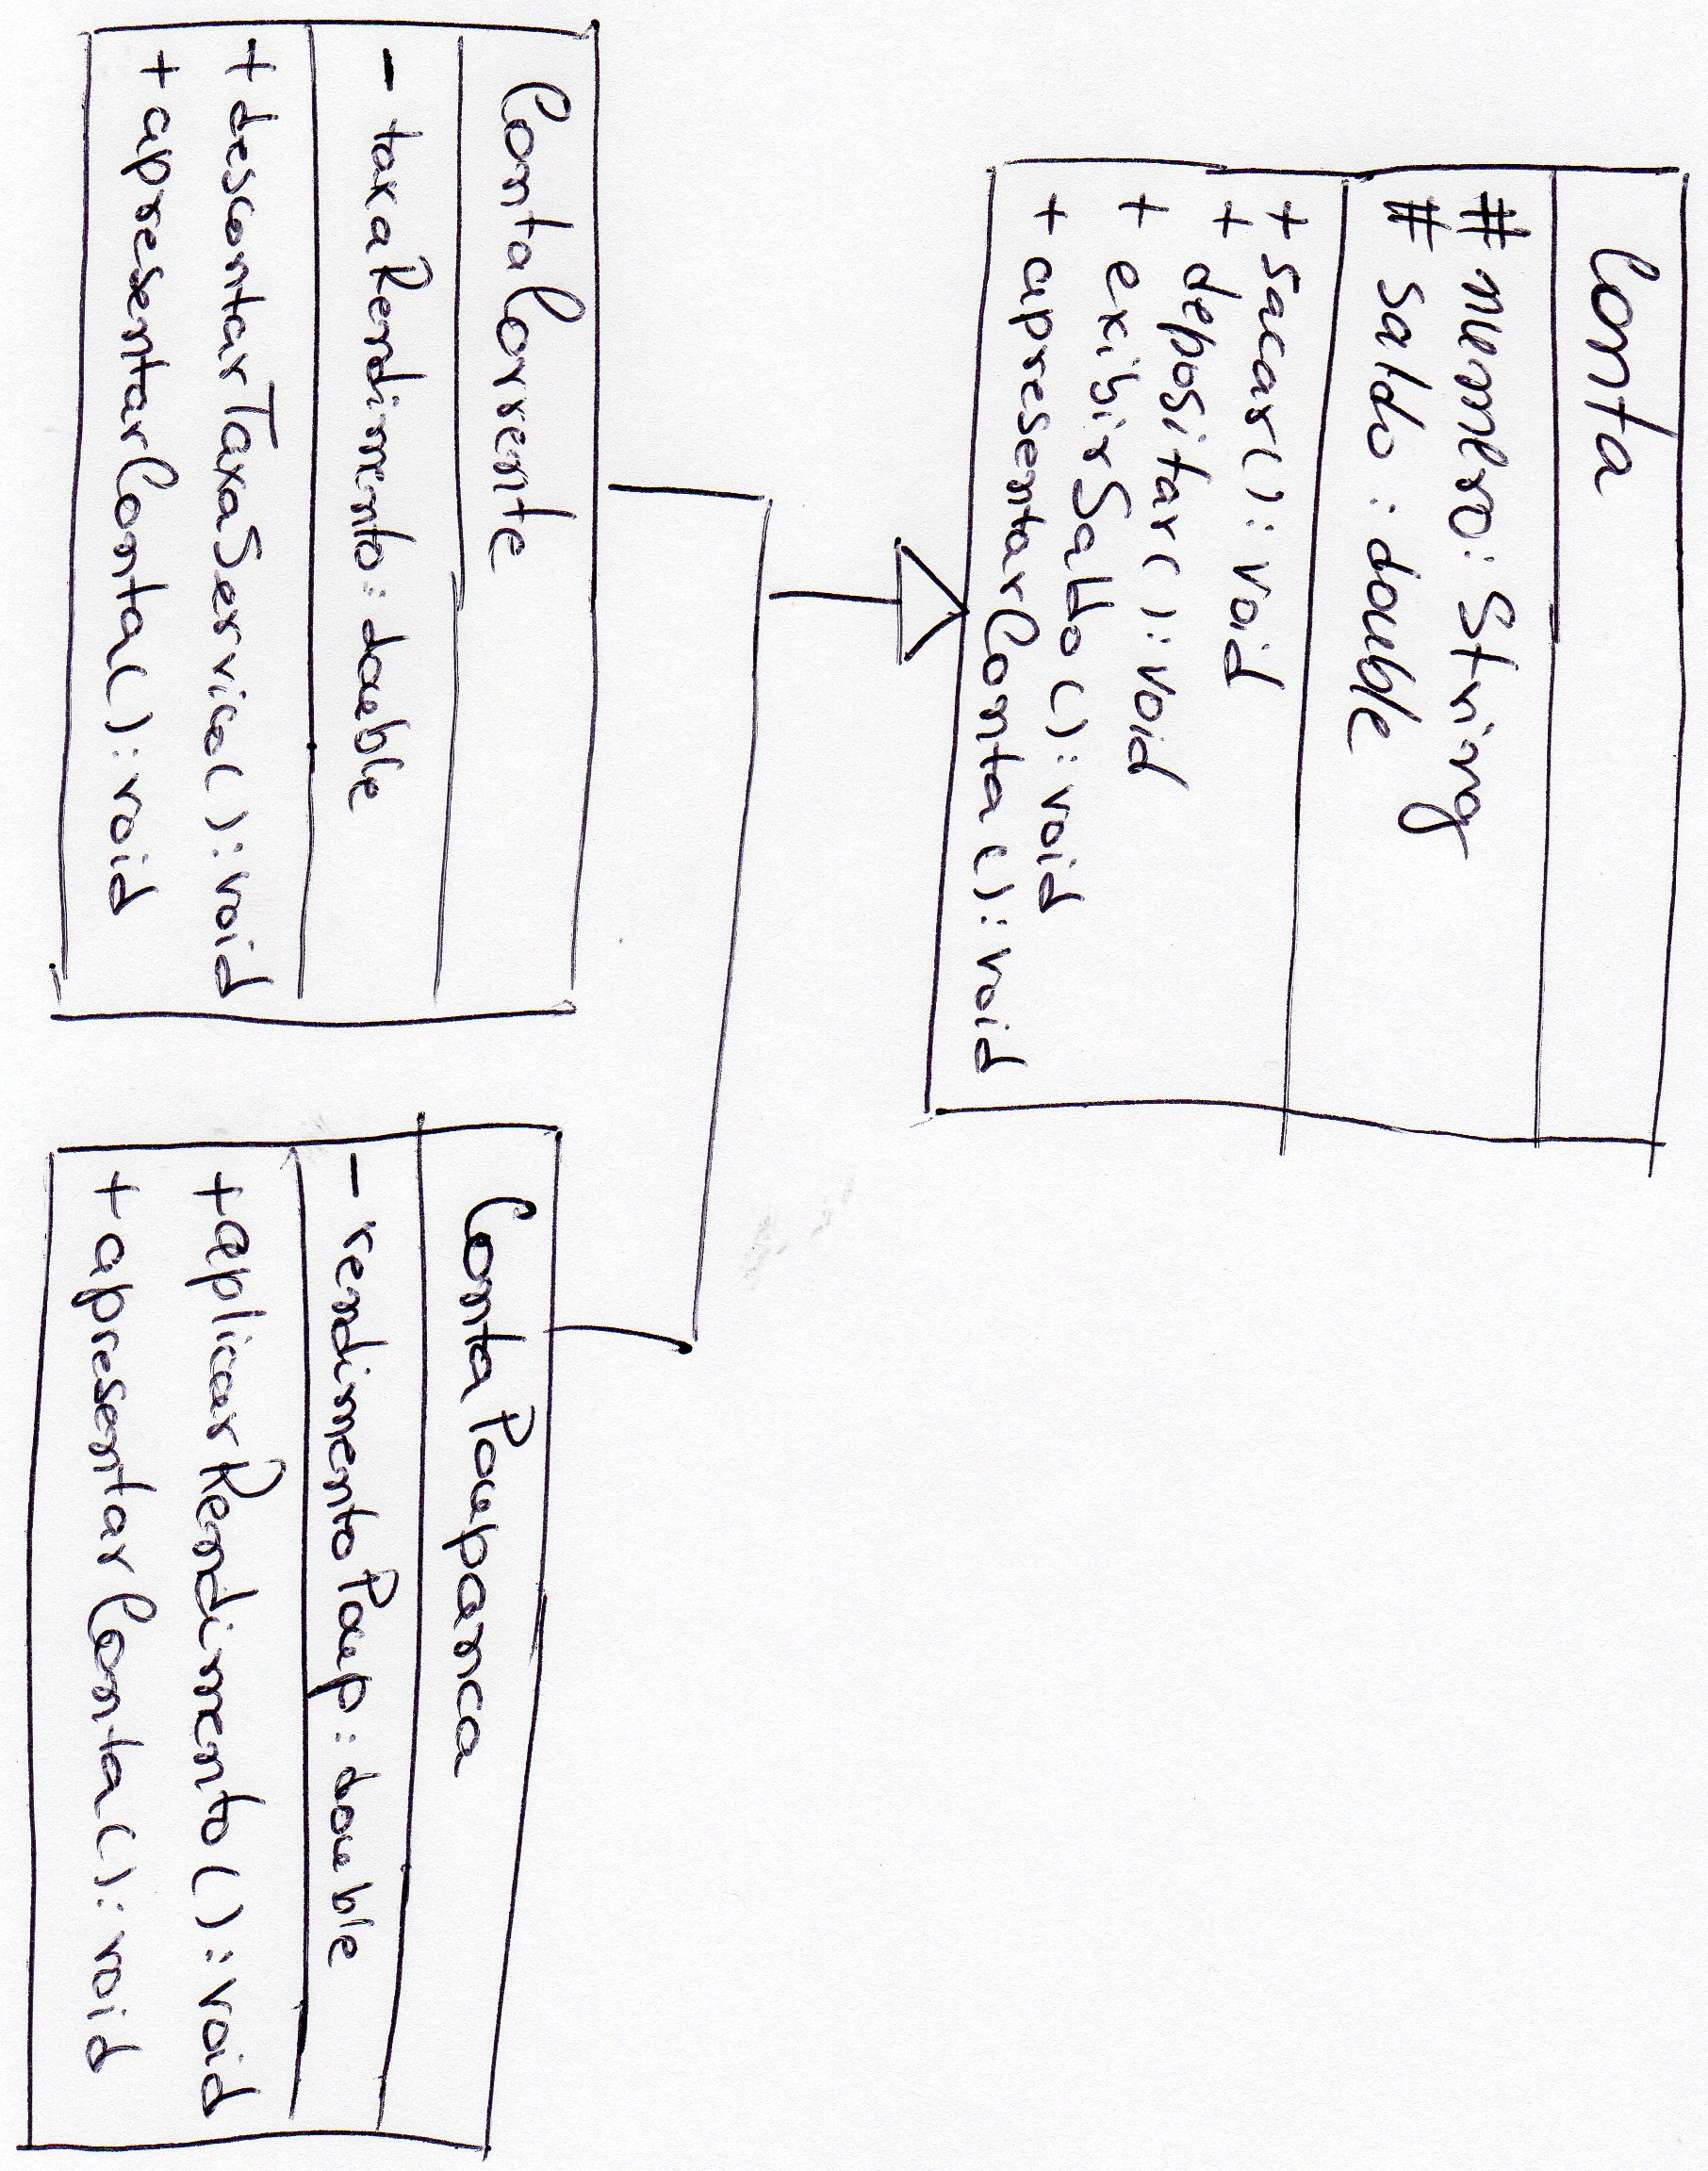 Conta
# numero: String
# saldo: double
+ sacar(): void
+ depositar(): void
+ exibirSaldo(): void
+ apresentarConta(): void
ContaCorrente
- taxaRendimento: double
+ descontarTaxaServico(): void
+ apresentarConta(): void
ContaPoupanca
- rendimentoPoup: double
+ aplicarRendimento(): void
+ apresentarConta(): void